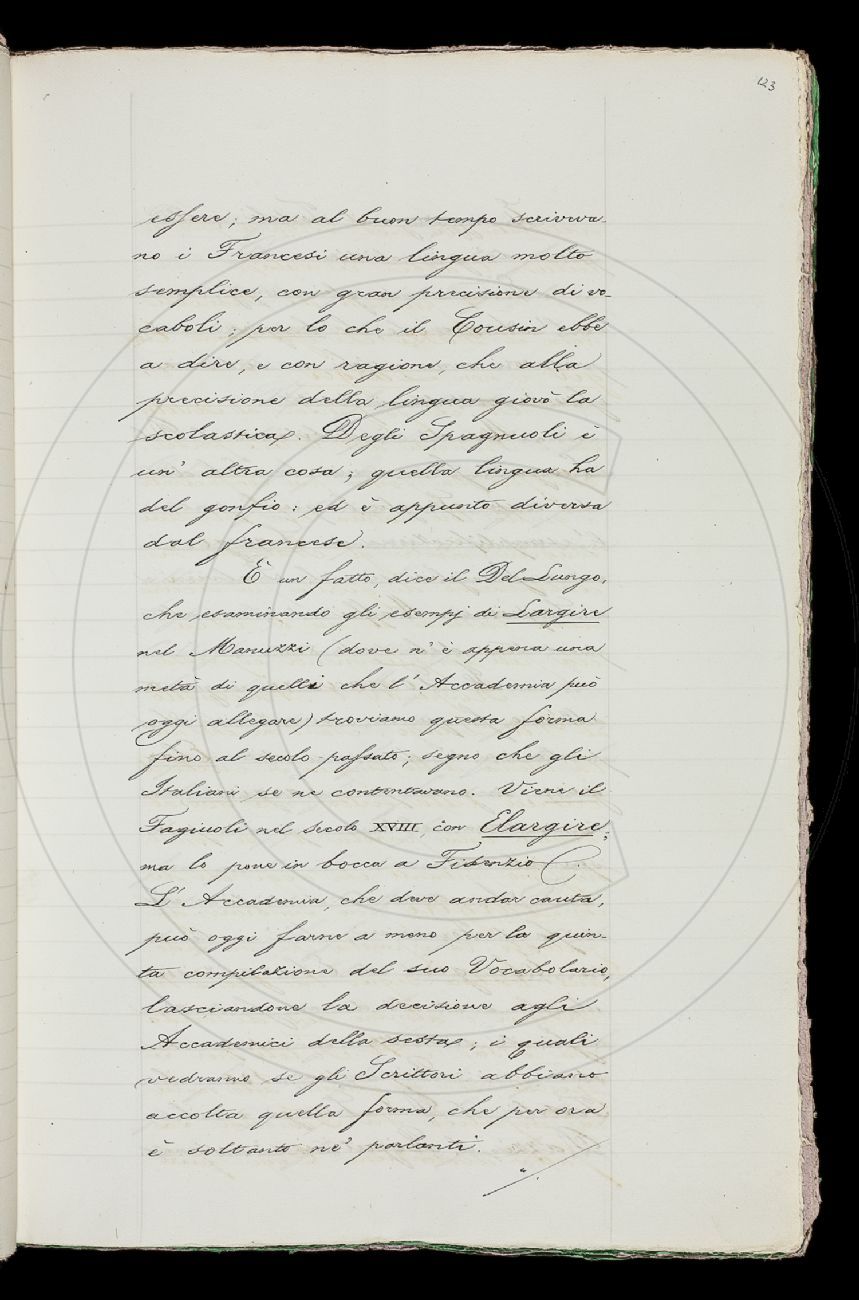 123
essere; ma al buon tempo scriveva-
no i Francesi una lingua molto
semplice, con gran precisione di vo-
caboli; per lo che il Cousin ebbe
a dire, e con ragione, che alla
precisione della lingua giovò la
scolastica. Degli Spagnuoli è
un' altra cosa; quella lingua ha
del gonfio: ed è appunto diversa
dal francese.
È un fatto, dice il Del Lungo,
che esaminando gli esempj di Largire
nel Manuzzi (dove n' è appena una
metà di quelli che l' Accademia può
oggi allegare) troviamo questa forma
fino al secolo passato; segno che gli
Italiani se ne contentavano. Viene il
Fagiuoli nel secolo XVIII, con Elargire;
ma lo pone in bocca a Fidenzio.
L' Accademia, che deve andar cauta,
può oggi farne a meno per la quin-
ta compilazione del suo Vocabolario,
lasciandone la decisione agli
Accademici della sesta; i quali
vedranno se gli Scrittori abbiano
accolta quella forma, che per ora
è soltanto ne' parlanti.